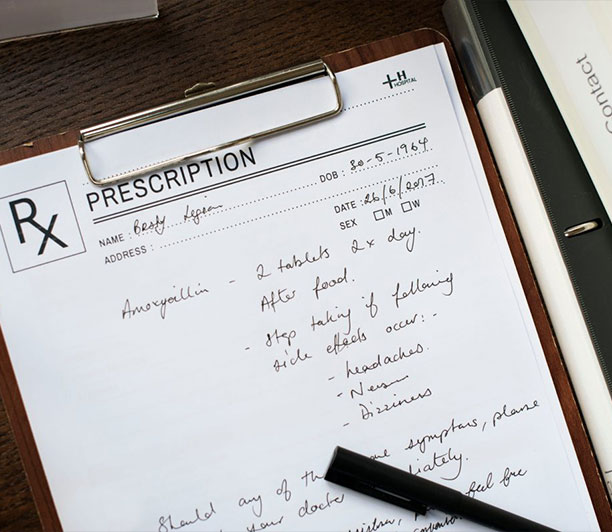 H
HOSPITAL
Rx
PRESCRIPTION
NAME : Besty
DOB : 30-5-1964
ADDRESS :
DATE : 26/6/2017
SEX M W
Amoxycillin - 2 tablets 2x day.
After food.
- Stop taking if following
side effects occur:-
- headaches.
-
- Dizziness
Should any of the symptoms, please
your doctor
feel free
contact